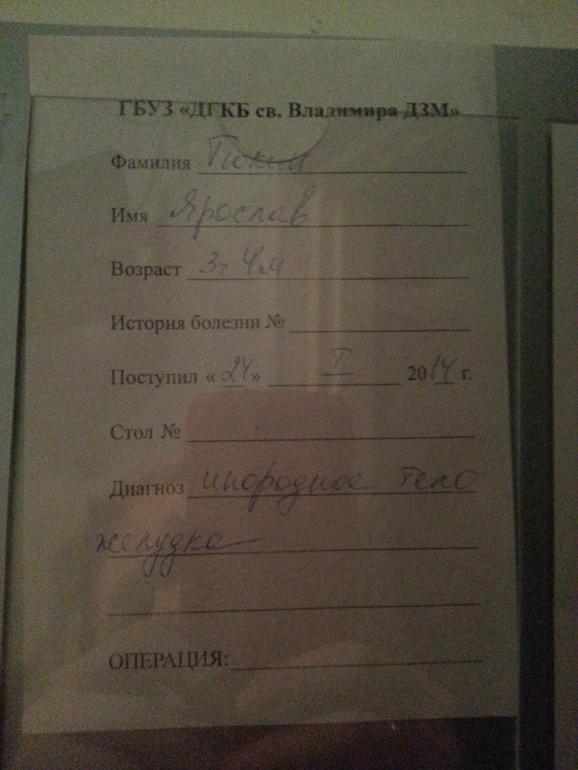 ГБУЗ «ДГКБ св. Владимира ДЗМ»
Фамилия
Имя Ярослав
Возраст 3г 4м
История болезни №
Поступил « 24 » I 2014 г.
Стол №
Диагноз инородное тело
желудка
ОПЕРАЦИЯ: